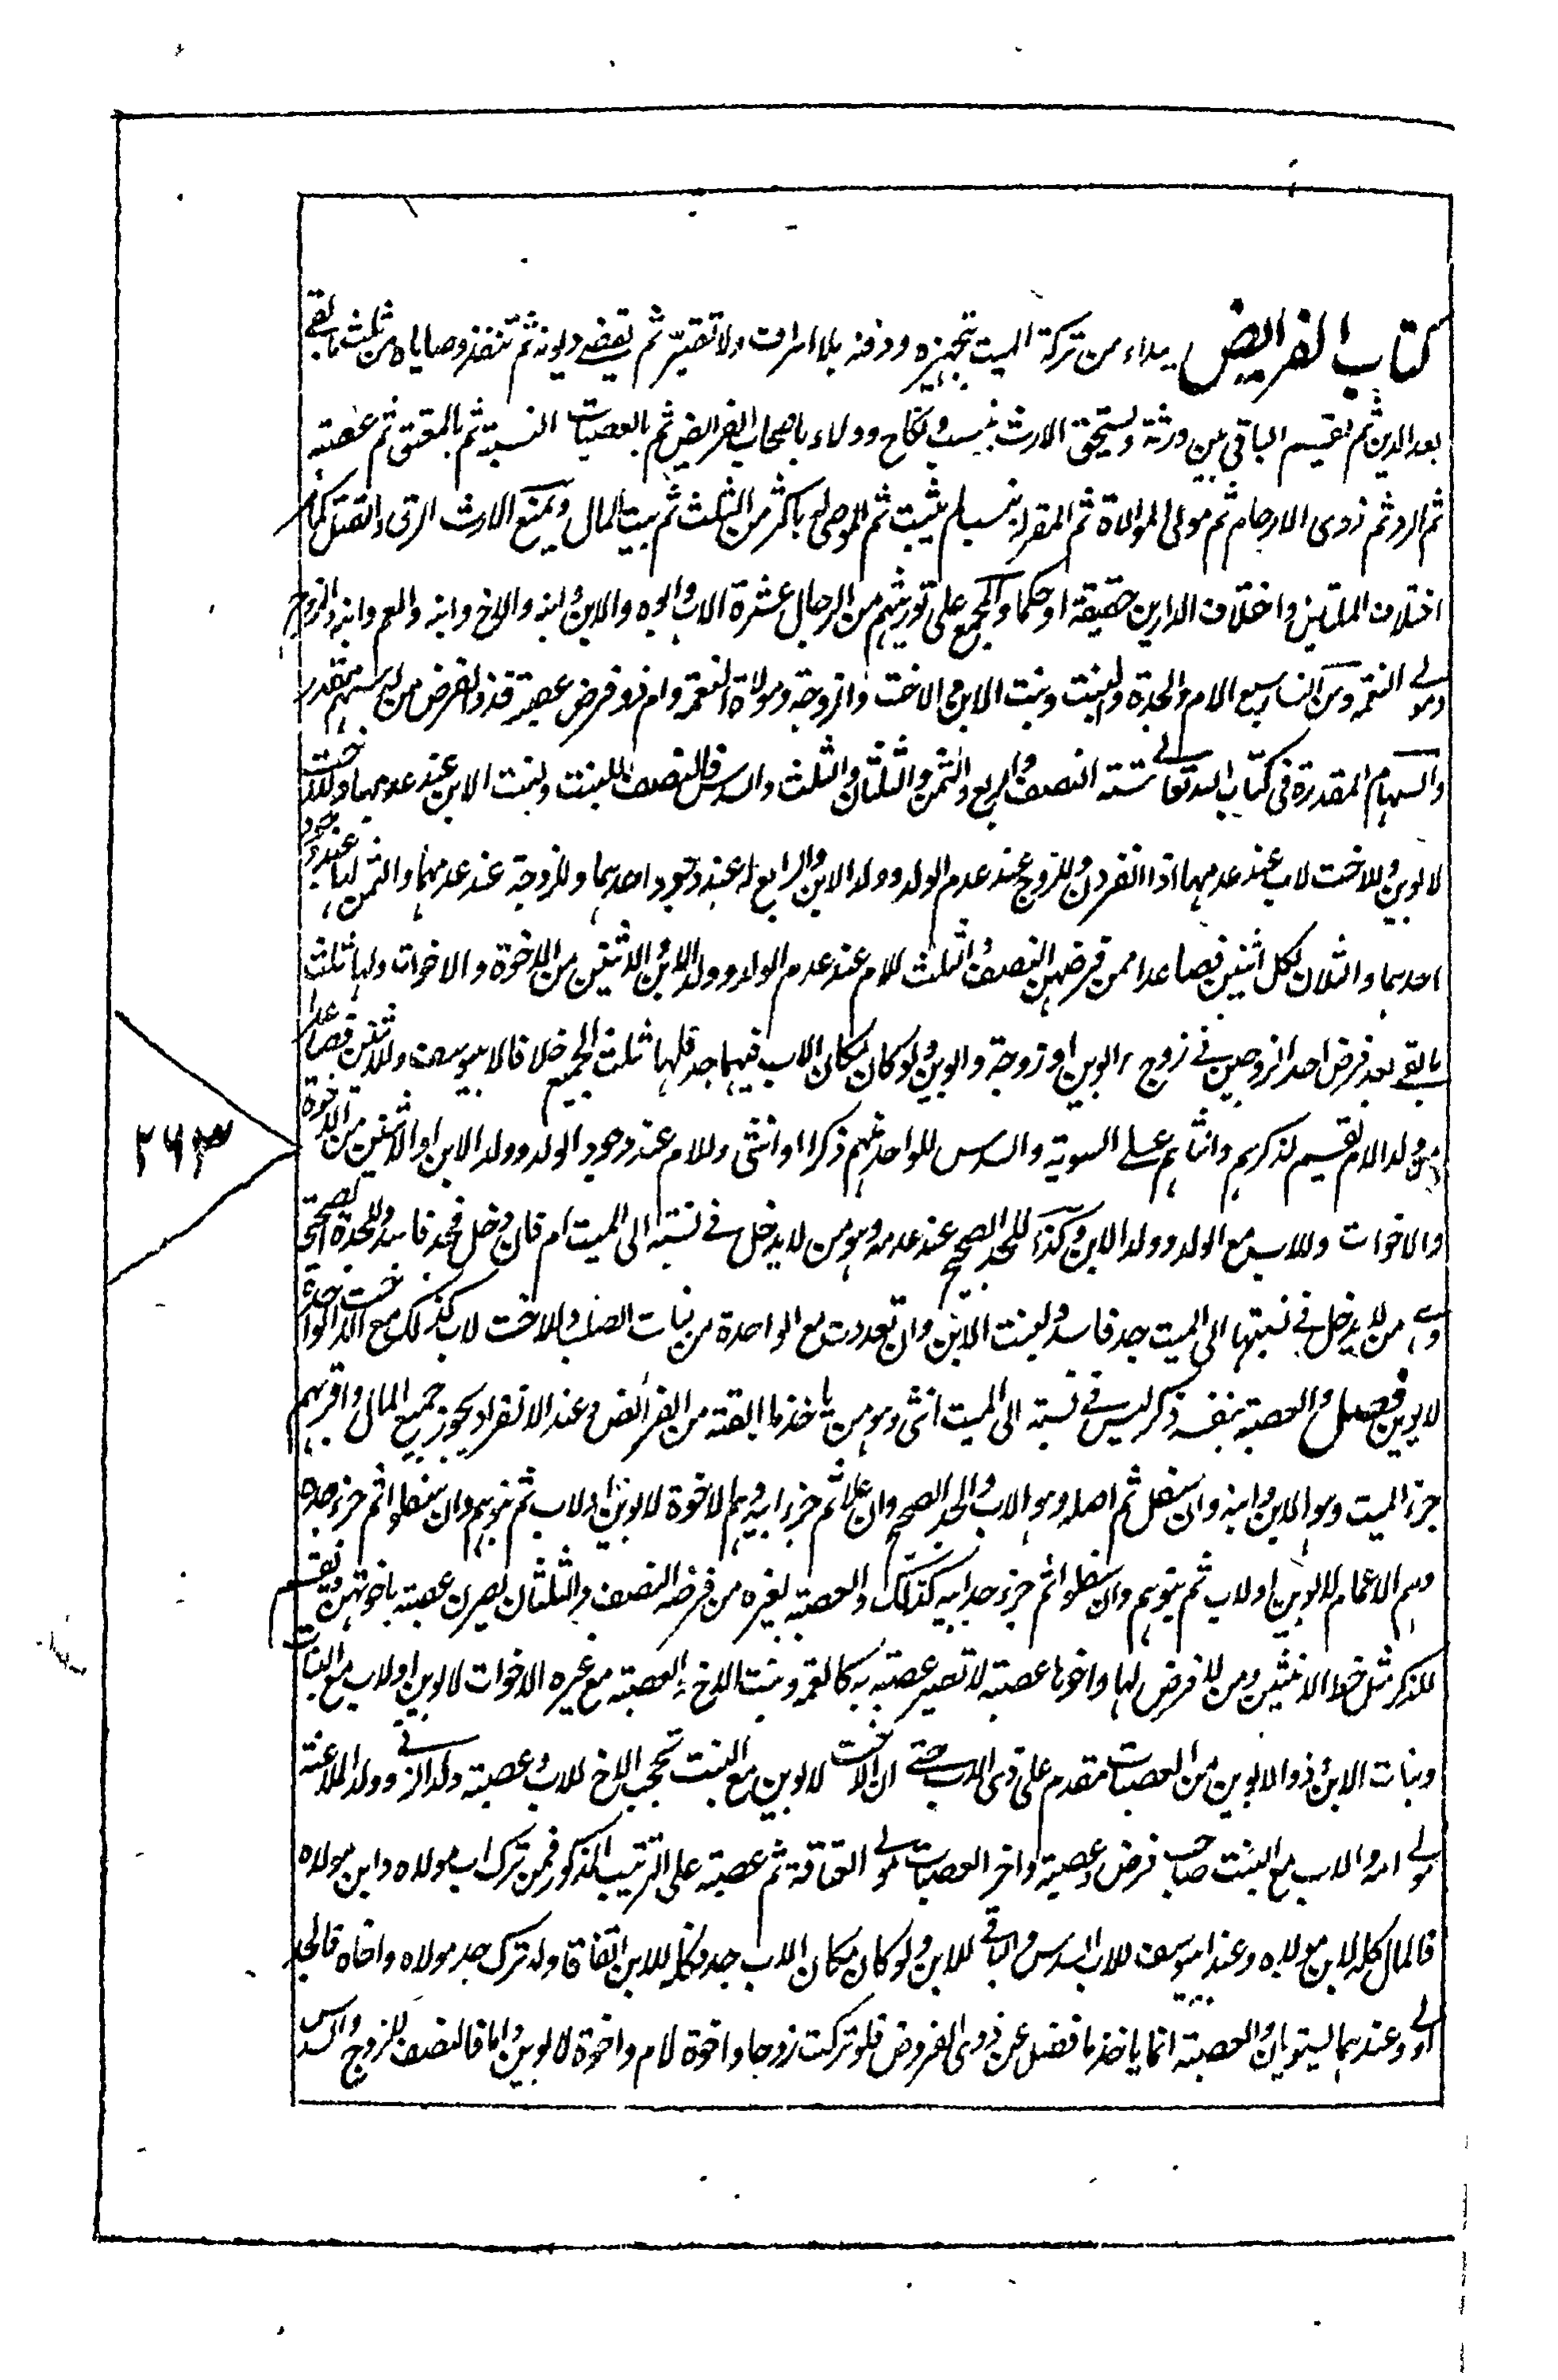 كتاب الفرايض يبداء من تركة الميت بتجهيزه ودفنه بلا اسراف ولا تقتير ثم يقضے ديونه ثم تنفذ وصاياه من ثلث ما بقے
بعد الدين ثم يقسم الباقي بين ورثته ويستحق الارث بنسب ونكاح وولاء باصحاب الفرايض ثم بالعصبات النسبية ثم بالمعتق ثم عصبته
ثم الرد ثم ذوى الارحام ثم مولى الموالاة ثم المقر له بنسب لم يثبت ثم الموصى له باكثر من الثلث ثم بيت المال ويمنع الارث الرق والقتل كما مر
اختلاف الملتين واختلاف الدارين حقيقة او حكما والمجمع على توريثهم من الرجال عشرة الاب وابوه والابن وابنه والاخ وابنه والعم وابنه والزوج
ومولے النعمة ومن النساء سبع الام والجدة والبنت وبنت الابن والاخت والزوجة ومولاة النعمة وهم ذو فرض وعصبة فذو الفرض من له سهم مقدر
والسهام المقدرة في كتاب الله تعالے ستة النصف والربع والثمن والثلثان والثلث والسدس فالنصف للبنت ولبنت الابن عند عدمها وللاخت
لابوين وللاخت لاب عند عدمها اذا انفردن وللزوج عند عدم الولد وولد الابن والربع له عند وجود احدهما وللزوجة عند عدمهما والثمن لها عند وجود
احدهما والثلثان لكل اثنتين فصاعدا ممن فرضهن النصف والثلث للام عند عدم الولد وولد الابن والاثنين من الاخوة والاخوات ولها ثلث
ما بقے بعد فرض احد الزوجين فے زوج وابوين او زوجة وابوين ولو كان مكان الاب فيهما جد فلها ثلث الجميع خلافا لابيوسف وللاثنين فصاعدا
من ولد الام يقسم لذكرهم وانثاهم علے السوية والسدس للواحد منهم ذكرا او انثى وللام عند وجود الولد وولد الابن او الاثنين من الاخوة
والاخوات وللاب مع الولد وولد الابن وكذا للجد الصحيح عند عدمه وهو من لا يدخل فے نسبته الى الميت ام فان دخل فجد فاسد وللجدة الصحيحة
وهے من لا يدخل فے نسبتها الى الميت جد فاسد ولبنت الابن وان تعددت مع الواحدة من بنات الصلب وللاخت لاب كذلك مع الاخت الواحدة
لابوين فصل والعصبة بنفسه ذكر ليس فے نسبته الى الميت انثى وهو من ياخذ ما ابقته من الفرائض وعند الانفراد يحوز جميع المال واقربهم
جزء الميت وهو الابن وابنه وان سفل ثم اصله وهو الاب والجد الصحيح وان علا ثم جزء ابيه وهم الاخوة لابوين او لاب ثم بنوهم وان سفلوا ثم جزء جده
وهم الاعمام لابوين او لاب ثم بنوهم وان سفلوا ثم جزء جد ابيه كذلك والعصبة بغيره من فرضه النصف والثلثان يصرن عصبة باخوتهن ويقسم
للذكر مثل حظ الانثيين ومن لا فرض لها واخوها عصبة لا تصير عصبة به كالعمة وبنت الاخ والعصبة مع غيره الاخوات لابوين او لاب مع البنات
وبنات الابن وذو الابوين من العصبات مقدم على ذى الاب حتے ان الاخت لابوين مع البنت تحجب الاخ للاب وعصبة ولد الزنے وولد الملاعنة
مولے امه والاب مع البنت صاحب فرض وعصبة واخر العصبات مولے العتاقة ثم عصبته على الترتيب المذكور فمن ترك اب مولاه وابن مولاه
فالمال كله لابن مولاه وعند ابيوسف للاب السدس والباقے للابن ولو كان مكان الاب جد فكله للابن اتفاقا ولو ترك جد مولاه واخاه فالجد
اولے وعندهما يستويان والعصبة انما ياخذ ما فضل عن ذوى الفروض فلو تركت زوجا واخوة لام واخوة لابوين واما فالنصف للزوج والسدس
۲۶۳